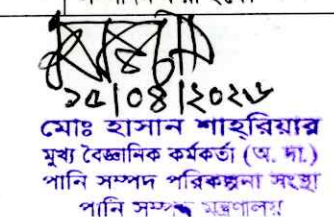 ১৫|০৪|২০২৬
মোঃ হাসান শাহ্‌রিয়ার
মুখ্য বৈজ্ঞানিক কর্মকর্তা (অ. দা.)
পানি সম্পদ পরিকল্পনা সংস্থা
পানি সম্পদ মন্ত্রণালয়